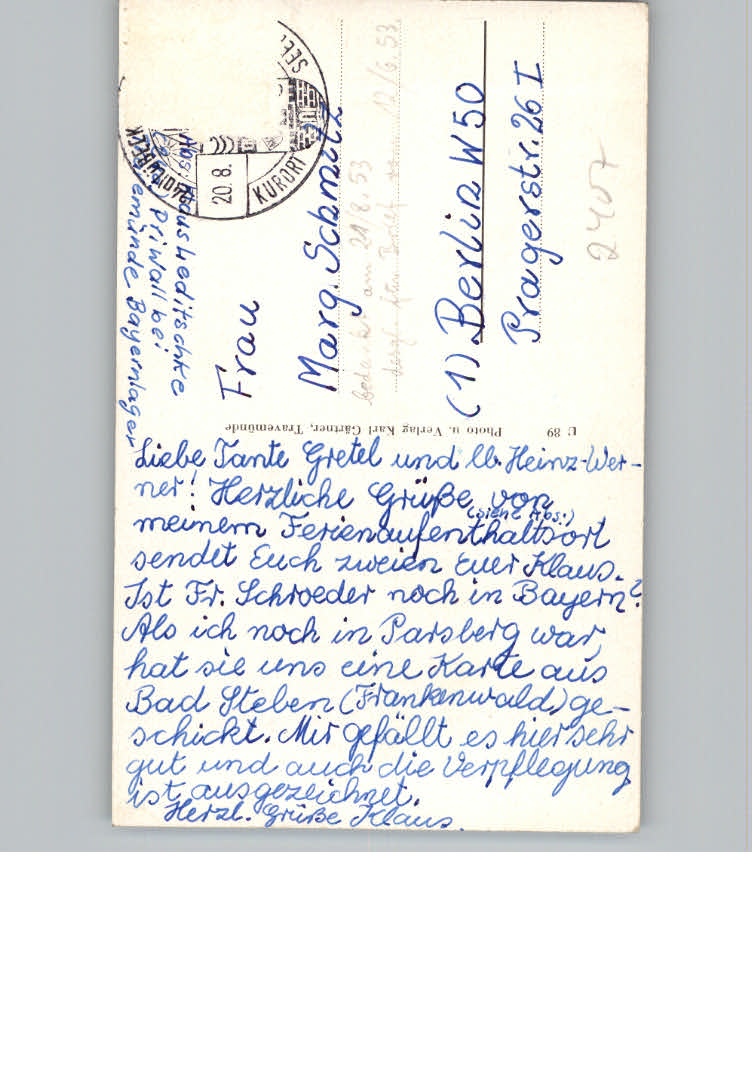 Liebe Tante Gretel und lb. Heinz-Wer-
ner! Herzliche Grüße von
(siehe Abs.:)
meinem Ferienaufenthaltsort
sendet Euch zweien Euer Klaus.
Ist Fr. Schroeder noch in Bayern?
Als ich noch in Parsberg war,
hat sie uns eine Karte aus
Bad Steben (Frankenwald) ge-
schickt. Mir gefällt es hier sehr
gut und auch die Verpflegung
ist ausgezeichnet.
Herzl. Grüße Klaus.
Abs. Klaus
Priwall bei
emünde Bayernlager
20.8.
KURORT
SEE
Frau
Marg. Schmitz
bedankt am 21/8.53
12/6.53
(1) Berlin W50
Pragerstr. 26 I
2407
U 89
Photo u. Verlag Karl Gärtner, Travemünde